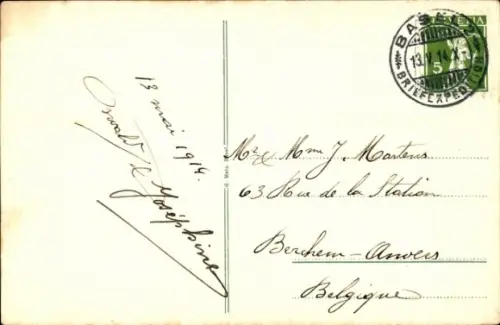 13 mai 1914.
Oswald & Joséphine
BASEL
13.V.14.X-
BRIEFEXPEDITION
5
Mr & Mme J. Martens
63 Rue de la Station
Berchem-Anvers
Belgique